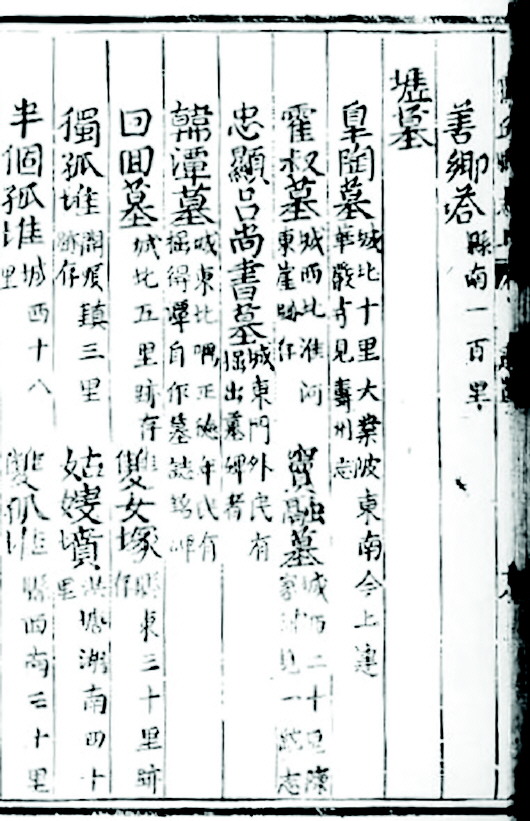 善鄉塔 縣南一百里
壠墓
皐陶墓 城北十里大業陂東南今上建
華嚴寺見壽州志
霍叔墓 城西北淮河
東崖跡存
竇融墓 城西二十里
見一統志
忠顯呂尚書墓 城東門外民有
掘出墓碑者
韓潭墓 城東北隅正德年代有
掘得潭自作墓誌
回回墓 城北五里跡存
雙女塚 縣東三十里跡
存
獨孤堆 鎮三里
跡存
姑嫂墳 湖南四十
里
半個孤堆 城西十八
里
雙孤堆 縣西南二十里